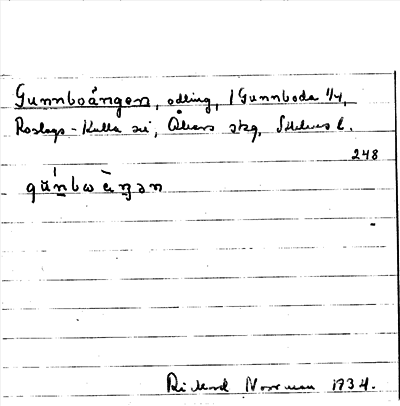 Gunnboängen, odling, 1 Gunnboda 1/4,
Roslags-Kulla sn, Åkers skg, Sthlms l.
248
Rickard Norrman 1934.